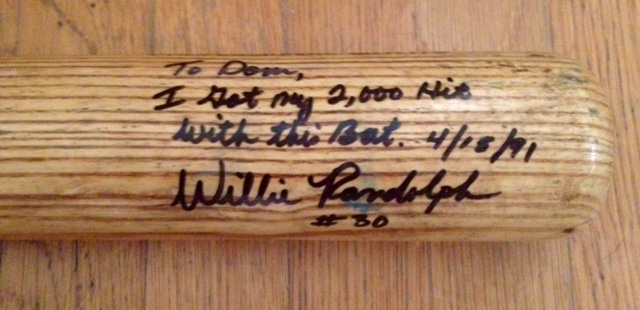 To Dom,
I Got my 2,000 Hit
With this Bat. 4/15/91
Willie Randolph
# 30